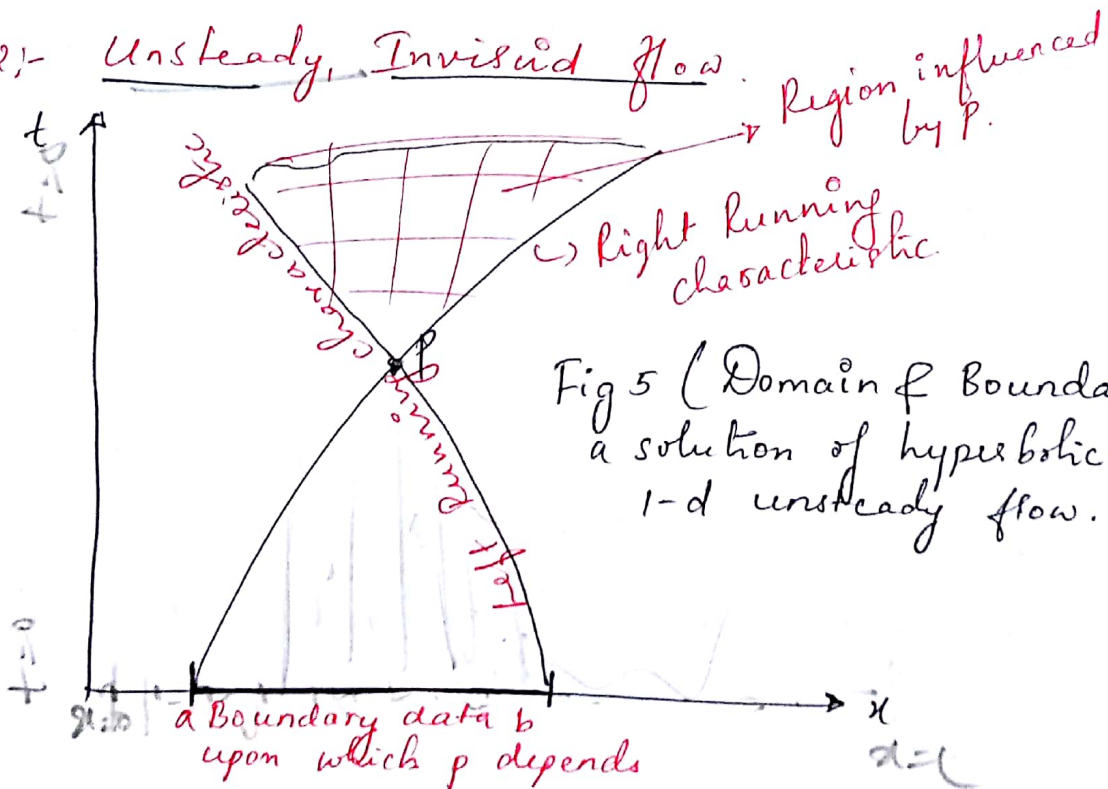 2:- Unsteady, Inviscid flow.
t
Region influenced
by P.
characteristic
Right Running
characteristic.
P
Left Running
Fig 5 (Domain & Bounda
a solution of hyperbolic
1-d unsteady flow.
a Boundary data b
upon which p depends
x
x=0
x=L